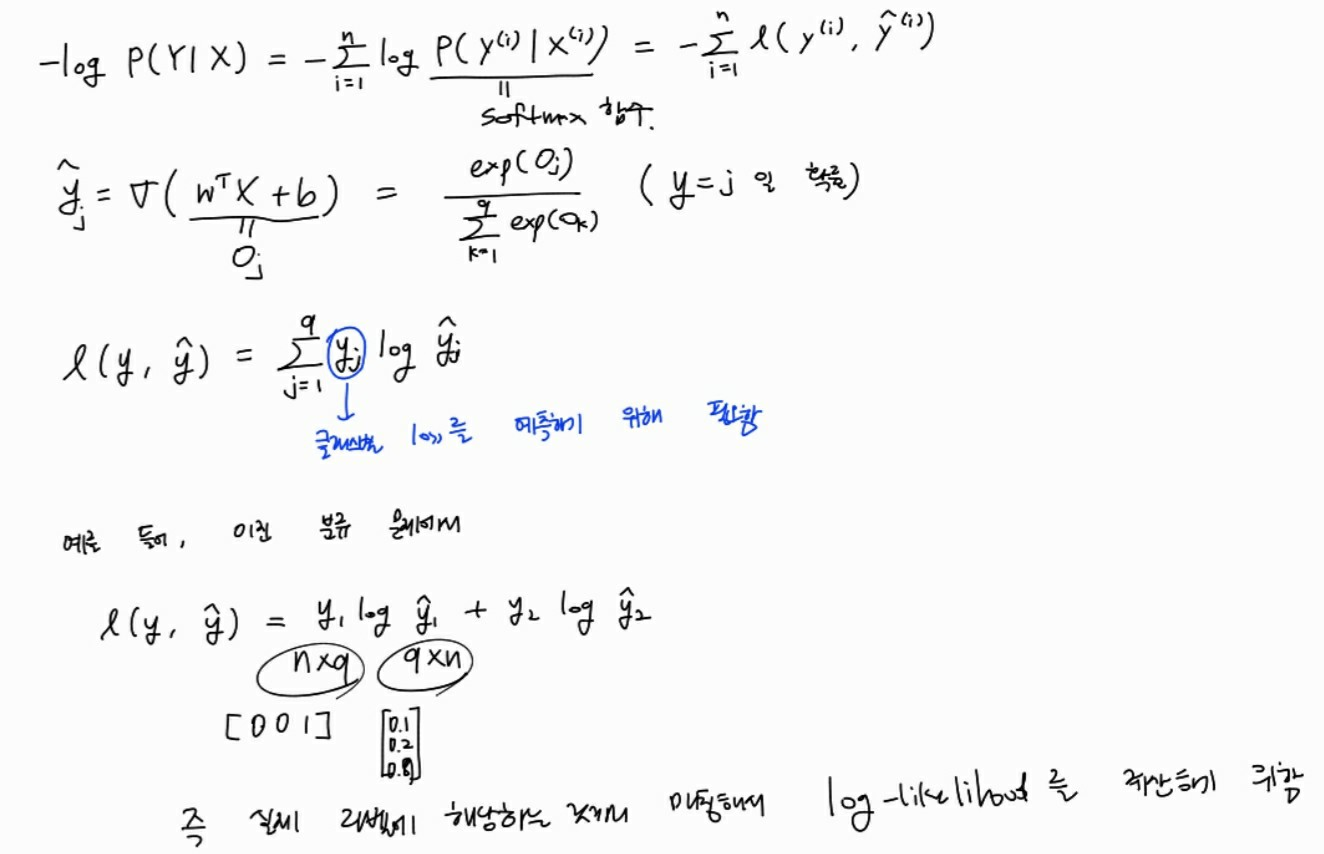 -log P(Y|X) = -∑_{i=1}^{n} log P(y^{(i)}|x^{(i)}) = -∑_{i=1}^{n} l(y^{(i)}, ŷ^{(i)})
softmax 함수.
ŷ_j = σ(w^T X + b) = exp(O_j) / ∑_{k=1}^{q} exp(O_k) (y=j 일 확률)
O_j
l(y, ŷ) = ∑_{j=1}^{q} y_j log ŷ_j
클래스별 loss를 예측하기 위해 필요함
예를 들어, 이진 분류 문제에서
l(y, ŷ) = y_1 log ŷ_1 + y_2 log ŷ_2
n×q q×n
[0 0 1] [0.1 0.2 0.8]
즉 실제 라벨에 해당하는 것에서 log-likelihood를 계산하기 위함